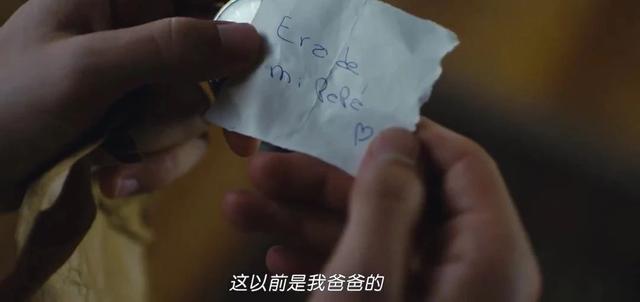 Era de
mi papá
♡
这以前是我爸爸的